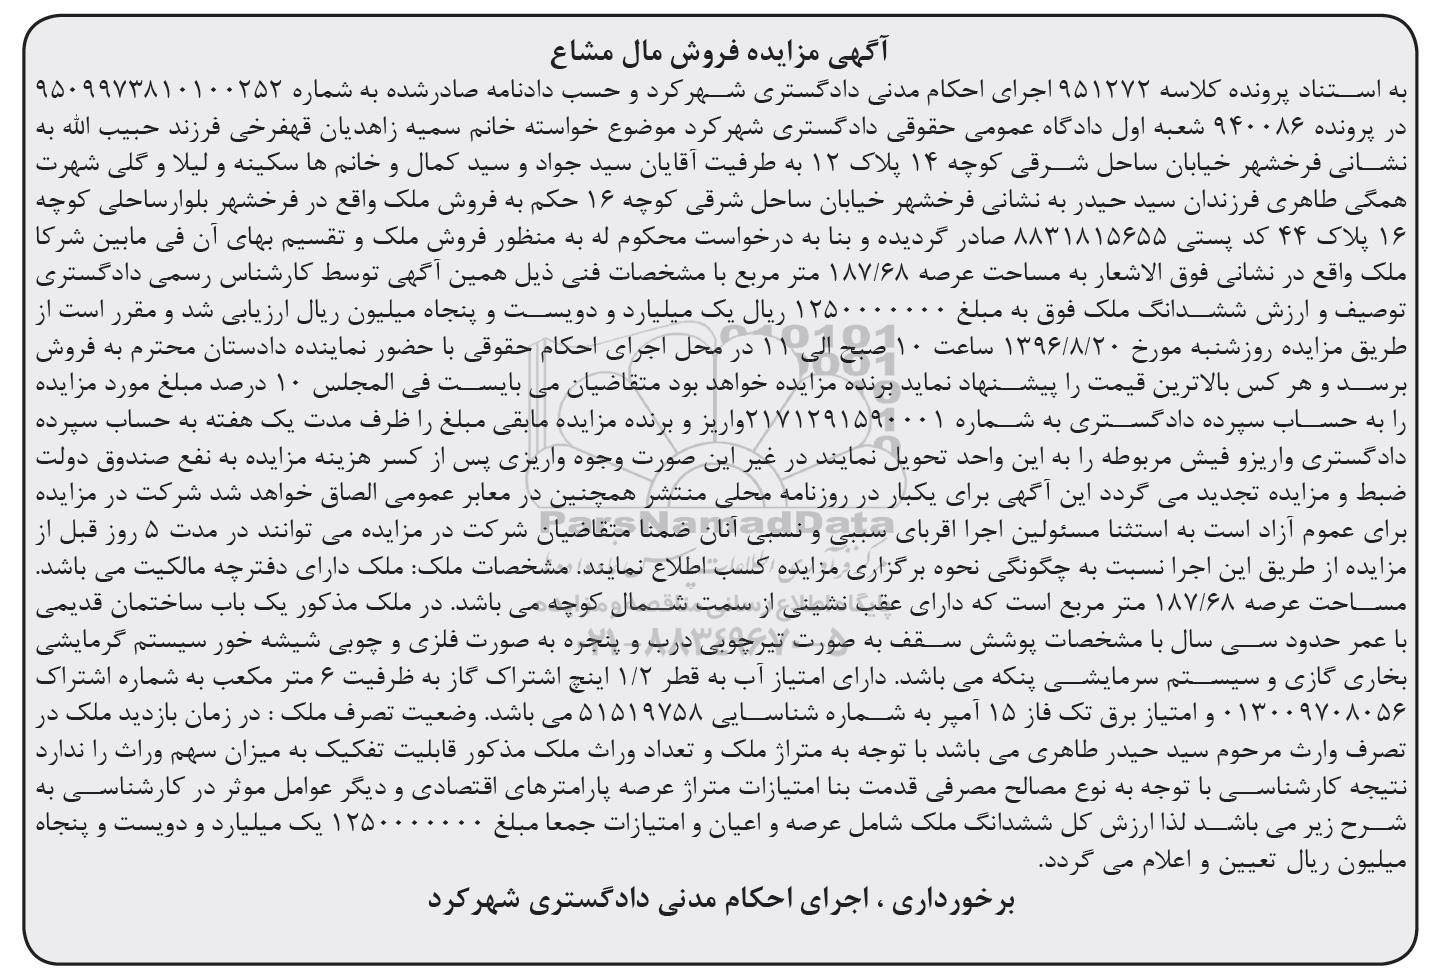 آگهی مزایده فروش مال مشاع
به استناد پرونده کلاسه ۹۵۱۲۷۲ اجرای احکام مدنی دادگستری شهرکرد و حسب دادنامه صادرشده به شماره ۹۵۰۹۹۷۳۸۱۰۱۰۰۲۵۲
در پرونده ۹۴۰۰۸۶ شعبه اول دادگاه عمومی حقوقی دادگستری شهرکرد موضوع خواسته خانم سمیه زاهدیان قهفرخی فرزند حبیب الله به
نشانی فرخشهر خیابان ساحل شرقی کوچه ۱۴ پلاک ۱۲ به طرفیت آقایان سید جواد و سید کمال و خانم ها سکینه و لیلا و گلی شهرت
همگی طاهری فرزندان سید حیدر به نشانی فرخشهر خیابان ساحل شرقی کوچه ۱۶ حکم به فروش ملک واقع در فرخشهر بلوارساحلی کوچه
۱۶ پلاک ۴۴ کد پستی ۸۸۳۱۸۱۵۶۵۵ صادر گردیده و بنا به درخواست محکوم له به منظور فروش ملک و تقسیم بهای آن فی مابین شرکا
ملک واقع در نشانی فوق الاشعار به مساحت عرصه ۱۸۷/۶۸ متر مربع با مشخصات فنی ذیل همین آگهی توسط کارشناس رسمی دادگستری
توصیف و ارزش ششدانگ ملک فوق به مبلغ ۱۲۵۰۰۰۰۰۰۰ ریال یک میلیارد و دویست و پنجاه میلیون ریال ارزیابی شد و مقرر است از
طریق مزایده روزشنبه مورخ ۱۳۹۶/۸/۲۰ ساعت ۱۰ صبح الی ۱۱ در محل اجرای احکام حقوقی با حضور نماینده دادستان محترم به فروش
برسد و هر کس بالاترین قیمت را پیشنهاد نماید برنده مزایده خواهد بود متقاضیان می بایست فی المجلس ۱۰ درصد مبلغ مورد مزایده
را به حساب سپرده دادگستری به شماره ۲۱۷۱۲۹۱۵۹۰۰۰۱واریز و برنده مزایده مابقی مبلغ را ظرف مدت یک هفته به حساب سپرده
دادگستری واریزو فیش مربوطه را به این واحد تحویل نمایند در غیر این صورت وجوه واریزی پس از کسر هزینه مزایده به نفع صندوق دولت
ضبط و مزایده تجدید می گردد این آگهی برای یکبار در روزنامه محلی منتشر همچنین در معابر عمومی الصاق خواهد شد شرکت در مزایده
برای عموم آزاد است به استثنا مسئولین اجرا اقربای سببی و نسبی آنان ضمنا متقاضیان شرکت در مزایده می توانند در مدت ۵ روز قبل از
مزایده از طریق این اجرا نسبت به چگونگی نحوه برگزاری مزایده کسب اطلاع نمایند. مشخصات ملک: ملک دارای دفترچه مالکیت می باشد.
مساحت عرصه ۱۸۷/۶۸ متر مربع است که دارای عقب نشینی از سمت شمال کوچه می باشد. در ملک مذکور یک باب ساختمان قدیمی
با عمر حدود سی سال با مشخصات پوشش سقف به صورت تیرچوبی درب و پنجره به صورت فلزی و چوبی شیشه خور سیستم گرمایشی
بخاری گازی و سیستم سرمایشی پنکه می باشد. دارای امتیاز آب به قطر ۱/۲ اینچ اشتراک گاز به ظرفیت ۶ متر مکعب به شماره اشتراک
۰۱۳۰۰۹۷۰۸۰۵۶ و امتیاز برق تک فاز ۱۵ آمپر به شماره شناسایی ۵۱۵۱۹۷۵۸ می باشد. وضعیت تصرف ملک : در زمان بازدید ملک در
تصرف وارث مرحوم سید حیدر طاهری می باشد با توجه به متراژ ملک و تعداد وراث ملک مذکور قابلیت تفکیک به میزان سهم وراث را ندارد
نتیجه کارشناسی با توجه به نوع مصالح مصرفی قدمت بنا امتیازات متراژ عرصه پارامترهای اقتصادی و دیگر عوامل موثر در کارشناسی به
شرح زیر می باشد لذا ارزش کل ششدانگ ملک شامل عرصه و اعیان و امتیازات جمعا مبلغ ۱۲۵۰۰۰۰۰۰۰ یک میلیارد و دویست و پنجاه
میلیون ریال تعیین و اعلام می گردد.
برخورداری ، اجرای احکام مدنی دادگستری شهرکرد
ParsNamadData
پایگاه اطلاع رسانی مناقصه و مزایده
۰۲۱-۸۸۳۴۹۶۷۰-۵